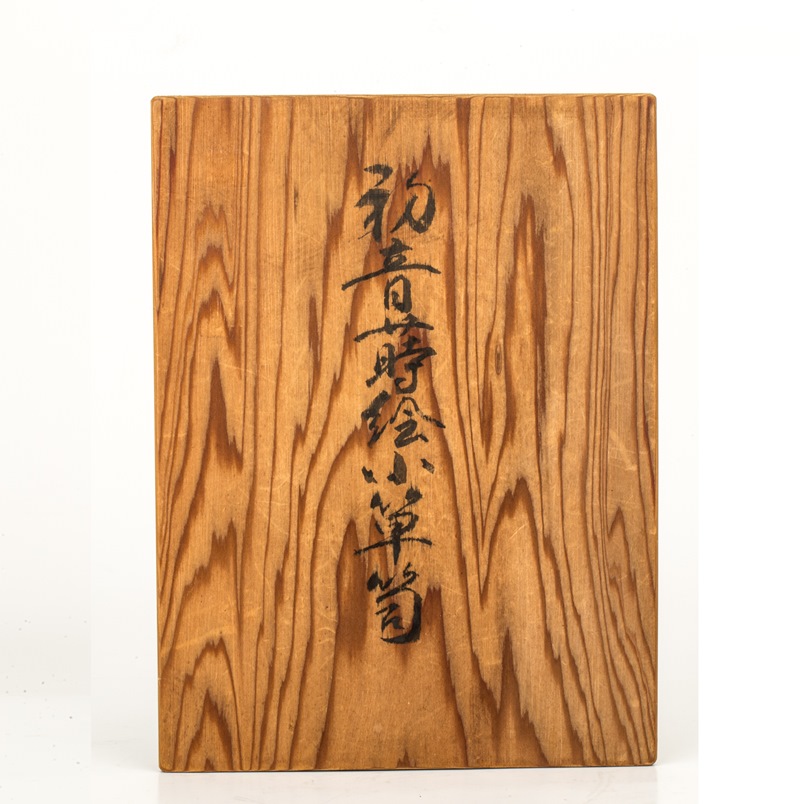 初音蒔絵小箪笥